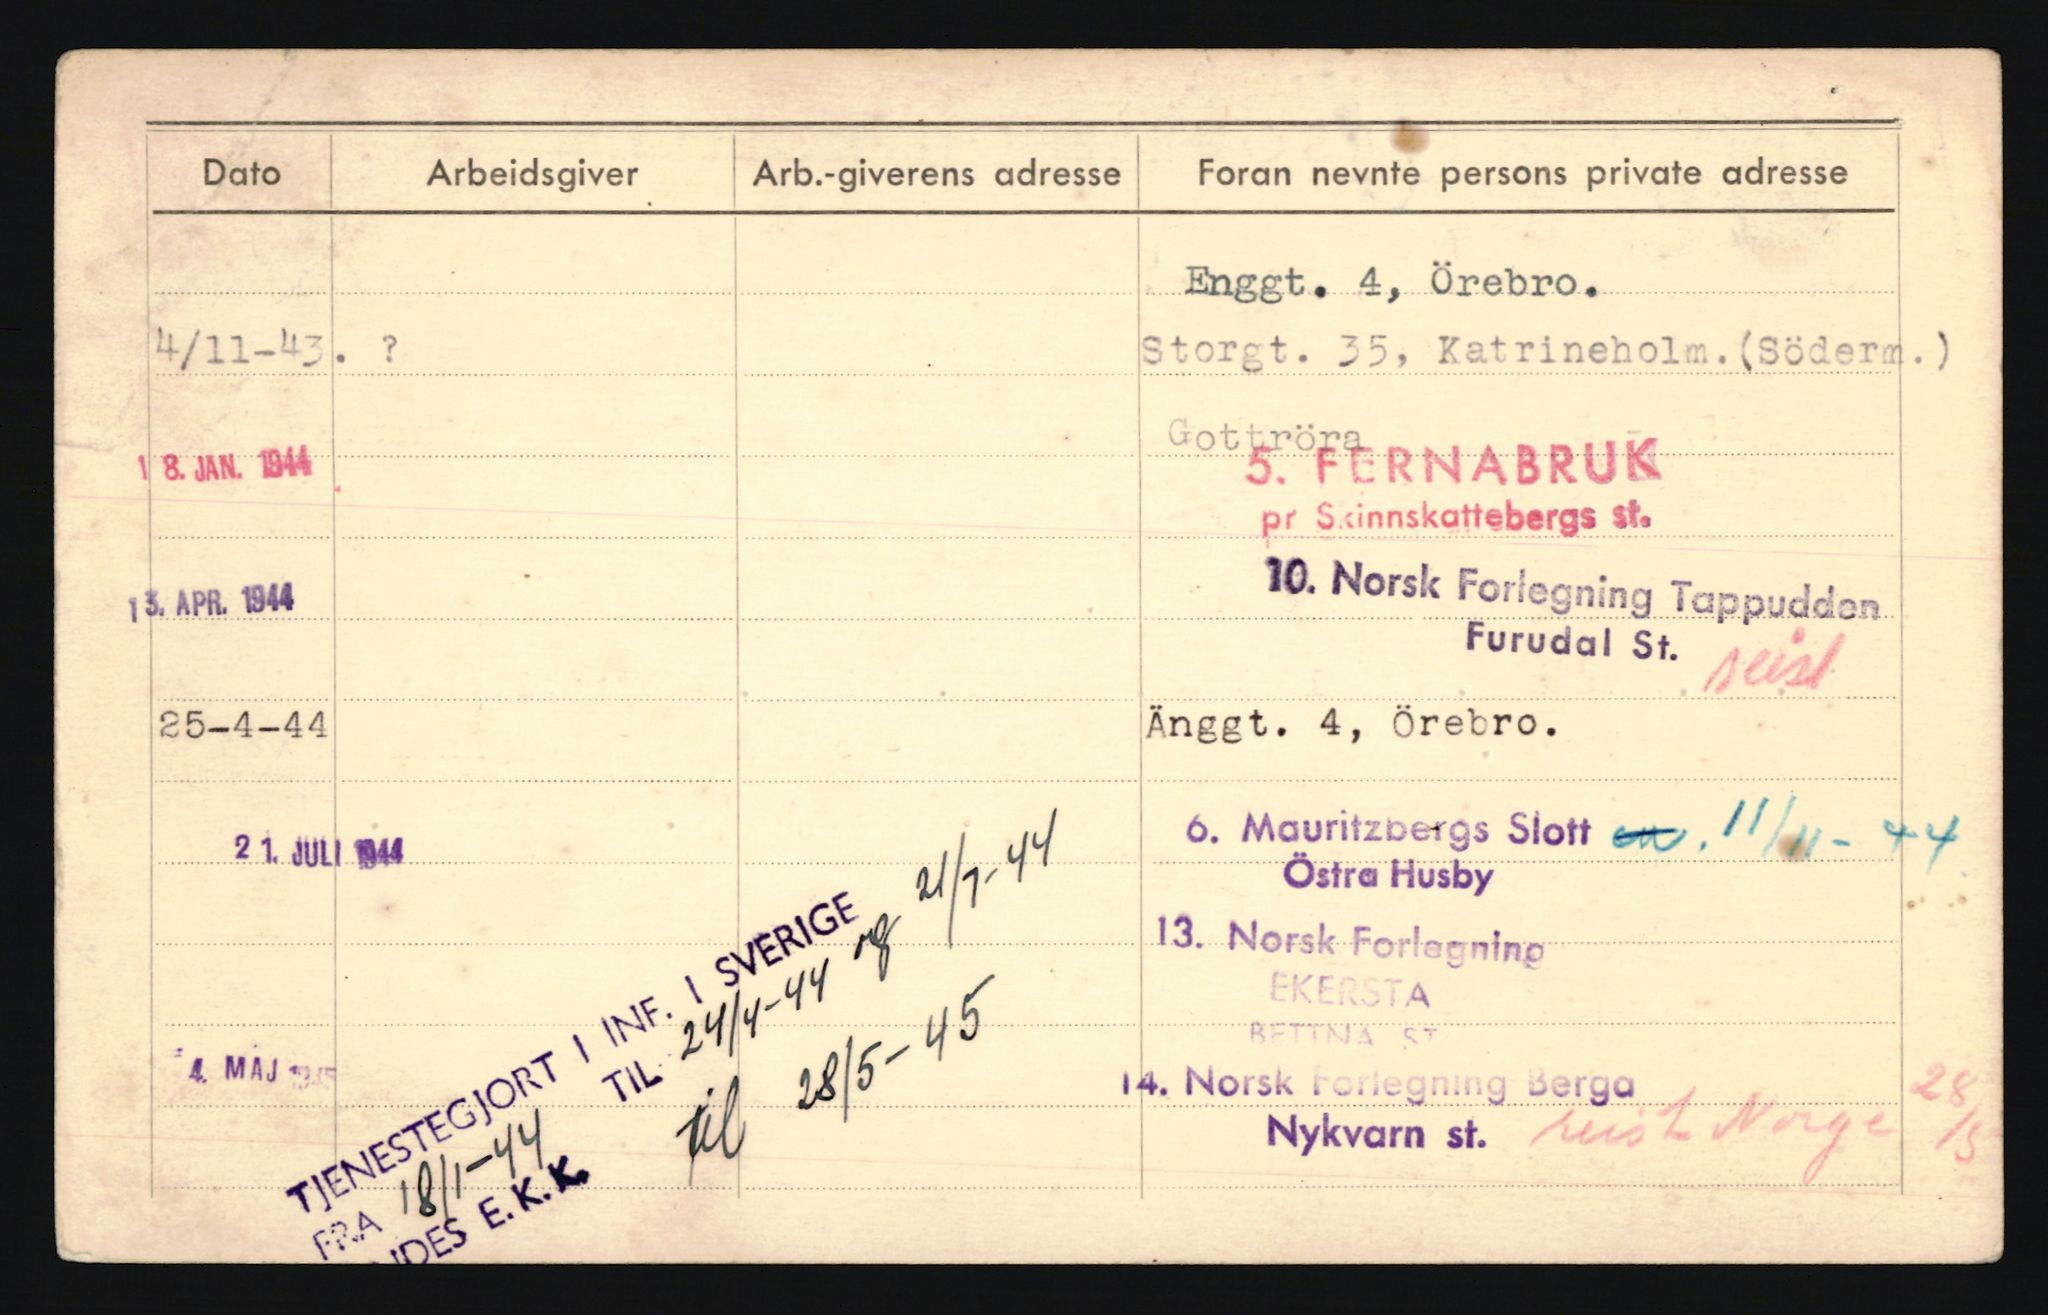 Dato Arbeidsgiver Arb.-giverens adresse Foran nevnte persons private adresse
Enggt. 4, Örebro.
4/11-43. ? Storgt. 35, Katrineholm.(Söderm.)
Gottröra
18. JAN. 1944 5. FERNABRUK
pr Skinnskattebergs st.
13. APR. 1944 10. Norsk Forlegning Tappudden
Furudal St. reist
25-4-44 Änggt. 4, Örebro.
21. JULI 1944 6. Mauritzbergs Slott 11/11-44.
Östra Husby
13. Norsk Forlegning
EKERSTA
BETTNA ST
4. MAJ 1945 14. Norsk Forlegning Berga
Nykvarn st. reist Norge 28/5
TJENESTEGJORT I INF. I SVERIGE
FRA 18/1-44 TIL 24/4-44 og 21/7-44
til 28/5-45
E.K.K.